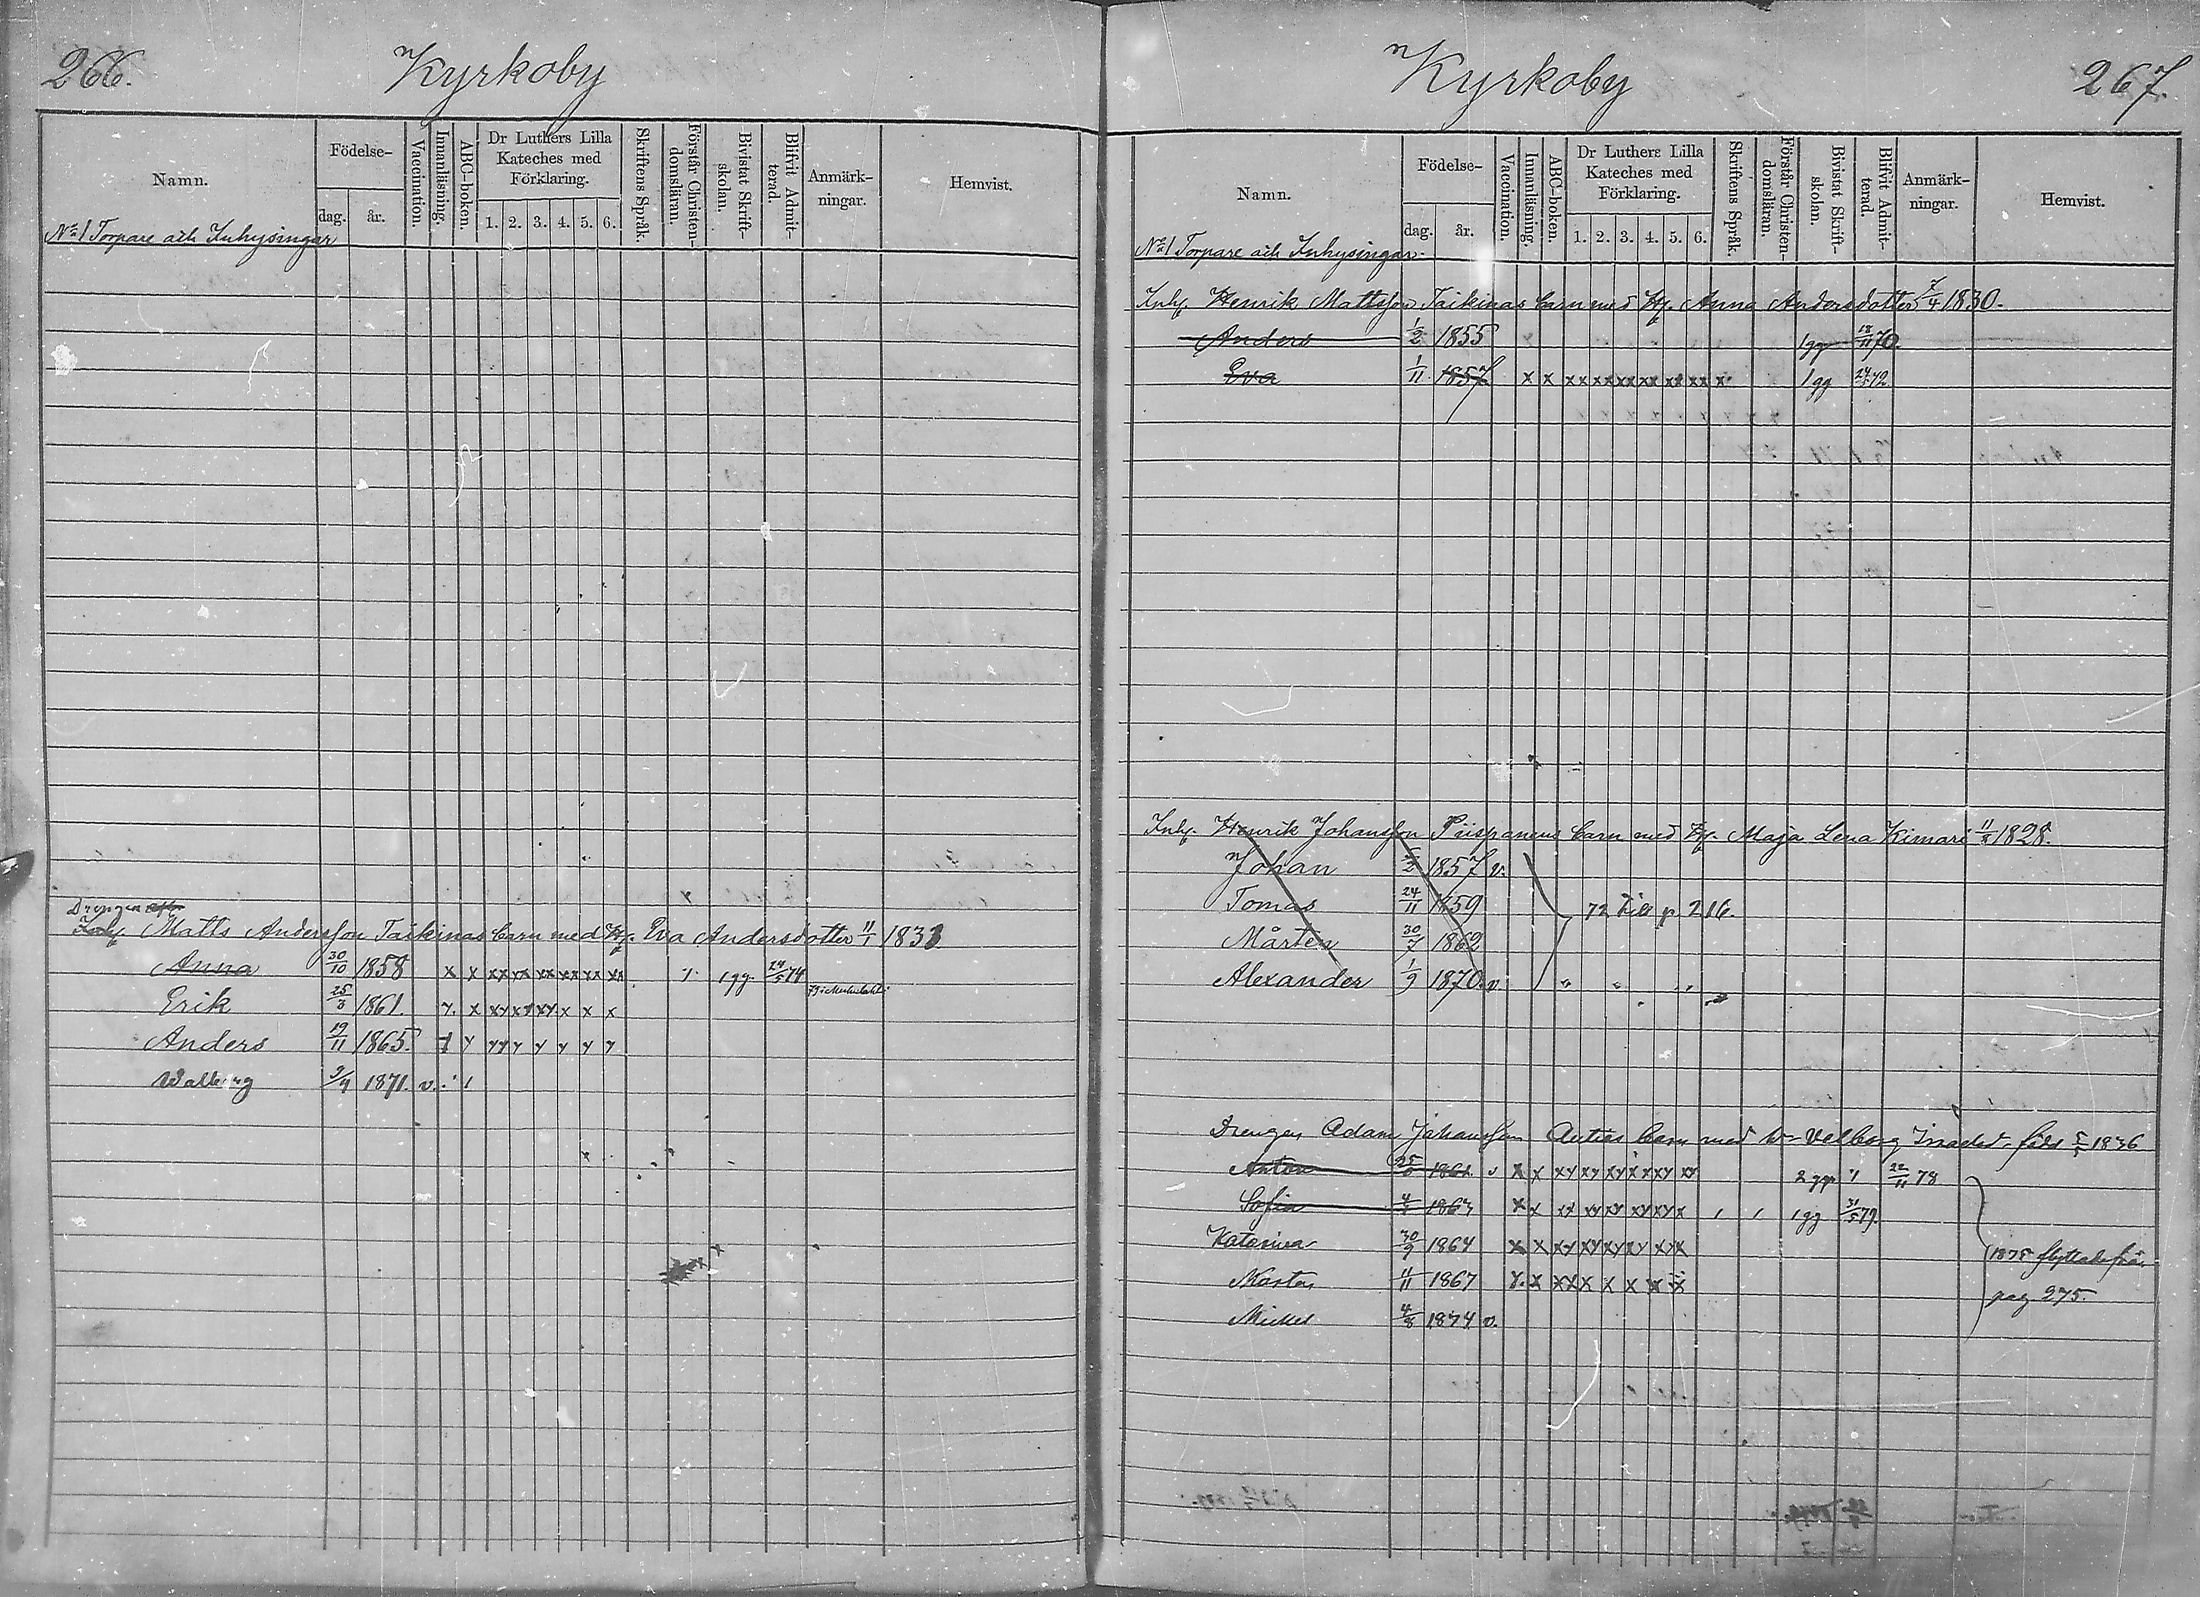 266.
Kyrkoby
Namn.
Födelse-
dag.
år.
Vaccination.
Innanläsning.
ABC-boken.
Dr Luthers Lilla
Kateches med
Förklaring.
1. 2. 3. 4. 5. 6.
Skriftens Språk.
Förstår Christen-
domsläran.
Bivistat Skrift-
skolan.
Blifvit Admit-
terad.
Anmärk-
ningar.
Hemvist.
No 1 Torpare och Inhysingar
Drengen
Inh. Matts Andersson Taikinas barn med H. Eva Andersdotter 11/1 1833
Anna 30/10 1858 x x xx xx xx xx xx xx 1 1 gg 24/5 74
Erik 25/3 1861. x. x xx xx xx x x x
Anders 19/11 1865.
Walborg 9/4 1871. v.
Kyrkoby
267.
Namn.
Födelse-
dag.
år.
Vaccination.
Innanläsning.
ABC-boken.
Dr Luthers Lilla
Kateches med
Förklaring.
1. 2. 3. 4. 5. 6.
Skriftens Språk.
Förstår Christen-
domsläran.
Bivistat Skrift-
skolan.
Blifvit Admit-
terad.
Anmärk-
ningar.
Hemvist.
No 1 Torpare och Inhysingar.
Inh. Henrik Mattsson Taikinas barn med H. Anna Andersdotter 7/4 1830.
Anders 1/2 1855 1 gg 18/11 70.
Eva 1/11 1857 x x xx xx xx xx xx xx x 1 gg 24/5 72.
Inh. Henrik Johansson Piispanens barn med H. Maja Lena Kimari 1828.
Johan 1857 v.
Tomas 24/11 1859 72 till p 216.
Mårten 30/7 1862
Alexander 1/9 1870. v.
Drengen Adam Johansson barn med Walborg född 1836
Anton 1862 v x x xx xx xx x xx xx 2 ggr 1 22/11 78
Sofia 1863 x x xx xx xx xx xx x 1 1 1 gg 31/5 79.
Katarina 30/9 1864 x x xx xx xx xx xx
1878 flyttade från
11 1867 x. x xx x x x x x
pag 275.
Mickel 4/8 1874 v.